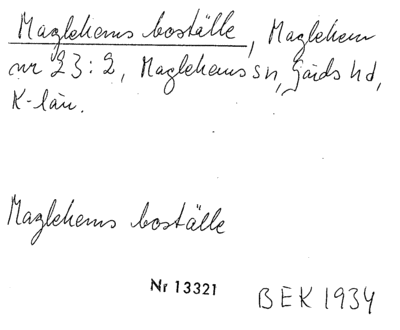 Maglehems boställe, Maglehem
nr 23:2, Maglehems sn, Gärds hd,
K-län.
Maglehems boställe
Nr 13321
BEK 1934